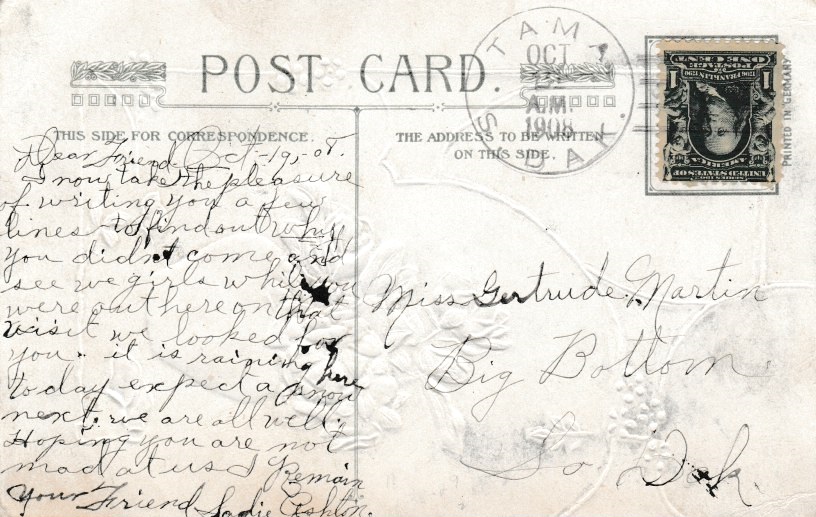 POST CARD.
THIS SIDE FOR CORRESPONDENCE.
THE ADDRESS TO BE WRITTEN
ON THIS SIDE.
Dear Friend Oct-19,-08.
I now take the pleasure
of writing you a few
lines to find out why
you didn't come and
see we girls while you
were out here on that
visit we looked for
you. it is raining here
today expect a snow
next. we are all well.
Hoping you are not
mad at us I Remain
Your Friend Sadie Ashton.
STAM
OCT
A.M.
1908
S. DAK.
1 ONE CENT 1
POSTAGE
FRANKLIN
AMERICA
UNITED STATES OF
SERIES 1902
PRINTED IN GERMANY
Miss Gertrude Martin
Big Bottom
So Dak.